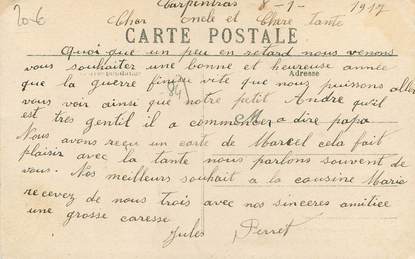 206
Carpentras 8-1-1917
Cher oncle et Chere tante
CARTE POSTALE
Quoi que un peu en retard nous venons
vous souhaiter une bonne et heureuse année
Correspondance
Adresse
que la guerre finisse vite que nous puissons aller
vous voir ainsi que notre petit André qu'il
est trés gentil il a commencer a dire papa
Nous avons reçu un carte de Marcel cela fait
plaisir avec la tante nous parlons souvent de
vous. Nos meilleurs souhait a la cousine Marie
recevez de nous trois avec nos sinceres amitiee
une grosse caresse
Jules Perret